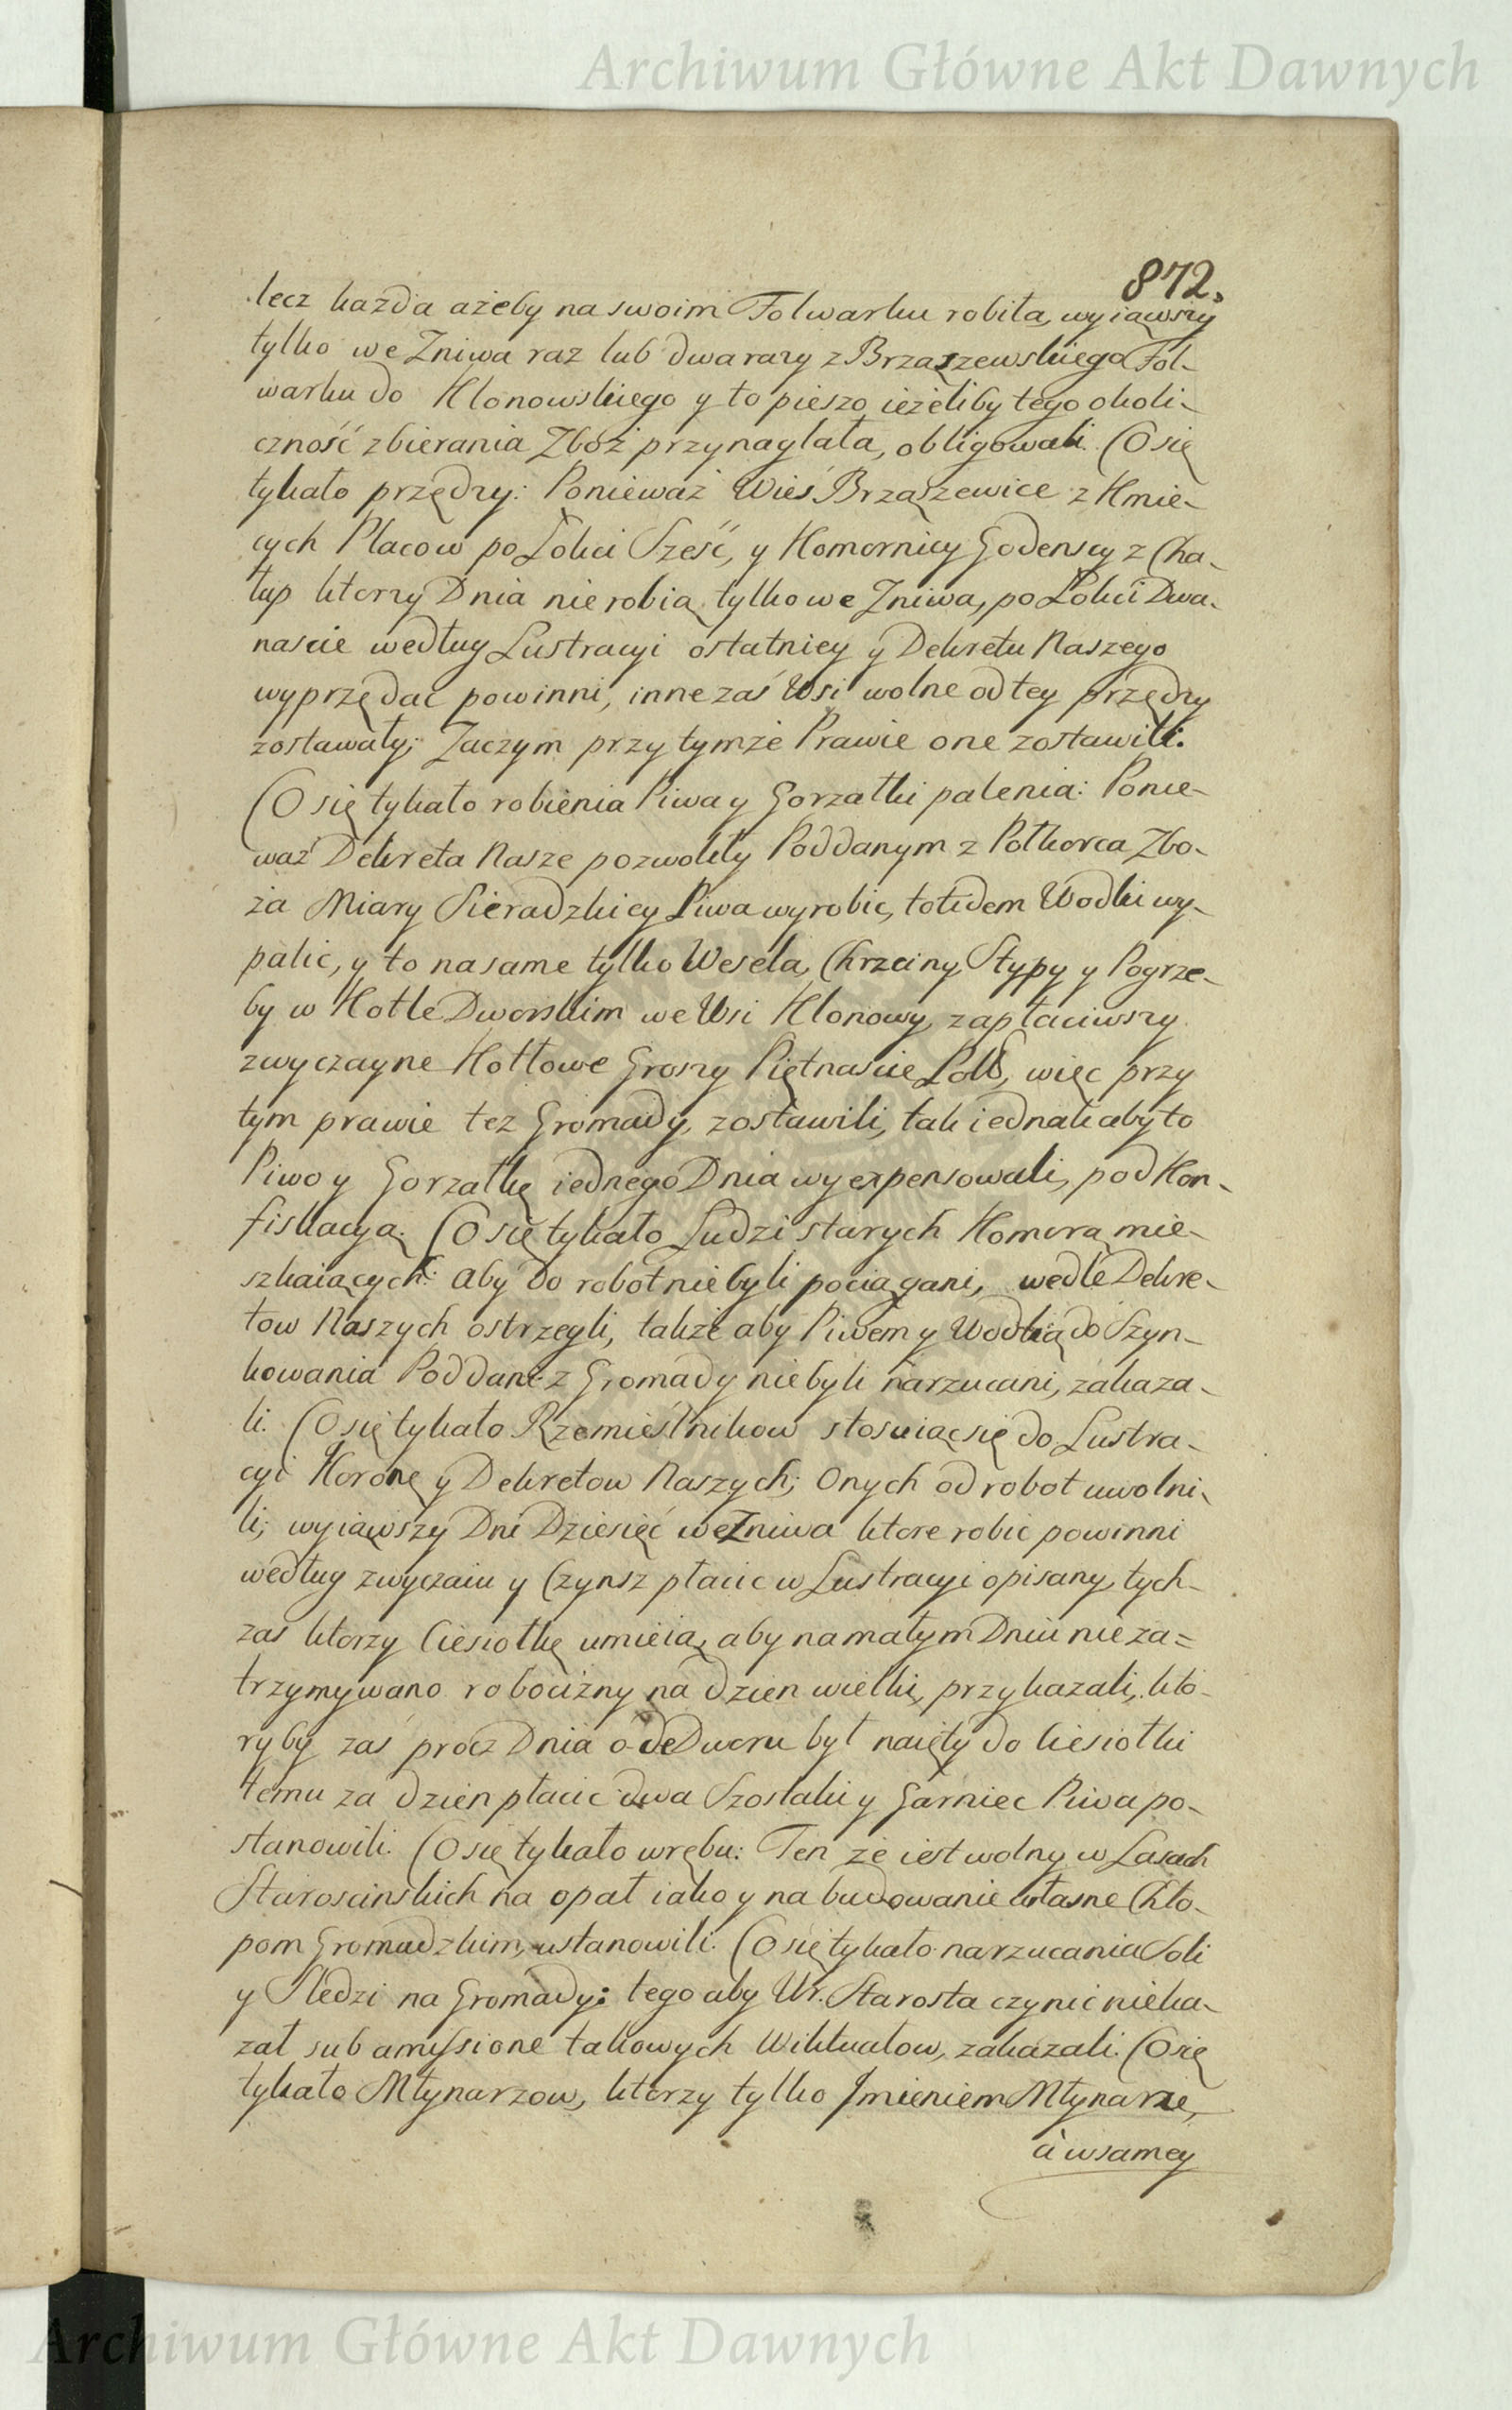 Archiwum Główne Akt Dawnych
872.
lecz każda ażeby na swoim Folwarku robiła, wyiąwszy
tylko we Zniwa raz lub dwa razy z Brząszewskiego Fol-
warku do Klonowskiego y to pieszo ieżeliby tego okoli-
czność zbierania Zboż przynaglała, obligowali. Co się
tykało przędzy: Ponieważ Wieś Brząszewice z Kmie-
cych Placow po Łokci Sześć, y Komornicy Godenscy z Cha-
łup ktorzy Dnia nie robią tylko we Zniwa, po Łokci Dwa-
nascie według Lustracyi ostatniey y Dekretu Naszego
wyprzędać powinni, inne zaś Wsi wolne od tey przędzy
zostawały; Zaczym przy tymże Prawie one zostawili.
Co się tykało robienia Piwa y Gorzałki palenia: Ponie-
waż Dekreta Nasze pozwoliły Poddanym z Połkorca Zbo-
ża Miary Sieradzkiey Piwa wyrobic, totidem Wodki wy-
palic, y to na same tylko Wesela, Chrzciny, Stypy y Pogrze-
by w Kotle Dworskim we Wsi Klonowy, zapłaciwszy
zwyczayne Kotłowe Groszy Piętnascie Pols, więc przy
tym prawie też Gromady, zostawili, tak iednak aby to
Piwo y Gorzałkę iednego Dnia wyexpensowali, pod Kon-
fiskacyą. Co się tykało Ludzi starych Komorą mie-
szkaiących: aby do robot nie byli pociągani, wedle Dekre-
tow Naszych ostrzegli, także aby Piwem y Wodką do Szyn-
kowania Poddani z Gromady nie byli narzucani, zakaza-
li. Co się tykało Rzemieślnikow stosuiąc się do Lustra-
cyi Koronę y Dekretow Naszych; Onych od robot uwolni-
li; wyiąwszy Dni Dziesięć we Zniwa ktore robic powinni
według zwyczaiu y Czynsz płacic w Lustracyi opisany, tych-
zas ktorzy Ciesiołkę umieią, aby na małym Dniu nie za=
trzymywano robocizny na dzien wielki, przykazali, kto-
ryby zaś procz Dnia o de Dworu był naięty do Ciesiołki
temu za dzien płacic dwa Szostaki y Garniec Piwa po-
stanowili. Co się tykało wrębu: Ten że iest wolny w Lasach
Staroscinskich na opał iako y na budowanie własne Chło-
pom Gromadzkim, ustanowili. Co się tykało narzucania Soli
y Sledzi na Gromady: tego aby Ur. Starosta czynic nieka-
zał sub amyssione takowych Wiktuałow, zakazali. Co się
tykało Młynarzow, ktorzy tylko Jmieniem Młynarze,
a w samey
Archiwum Główne Akt Dawnych